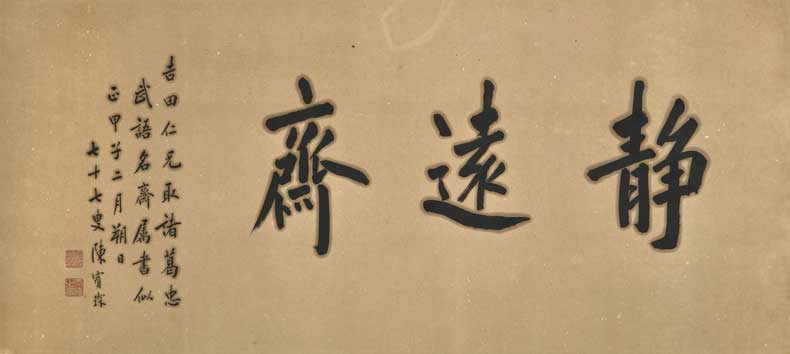 静遠齋
吉田仁兄取諸葛忠
武語名齋属書似
正甲子二月朔日
七十七叟陳寶琛